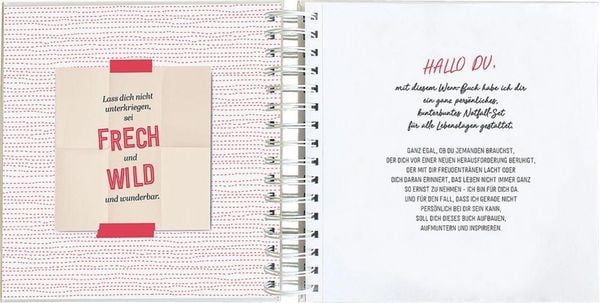 Lass dich nicht
unterkriegen,
sei
FRECH
und
WILD
und wunderbar.
HALLO DU,
mit diesem Wenn-Buch habe ich dir
ein ganz persönliches,
kunterbuntes Notfall-Set
für alle Lebenslagen gestaltet.
GANZ EGAL, OB DU JEMANDEN BRAUCHST,
DER DICH VOR EINER NEUEN HERAUSFORDERUNG BERUHIGT,
DER MIT DIR FREUDENTRÄNEN LACHT ODER
DICH DARAN ERINNERT, DAS LEBEN NICHT IMMER GANZ
SO ERNST ZU NEHMEN - ICH BIN FÜR DICH DA.
UND FÜR DEN FALL, DASS ICH GERADE NICHT
PERSÖNLICH BEI DIR SEIN KANN,
SOLL DICH DIESES BUCH AUFBAUEN,
AUFMUNTERN UND INSPIRIEREN.